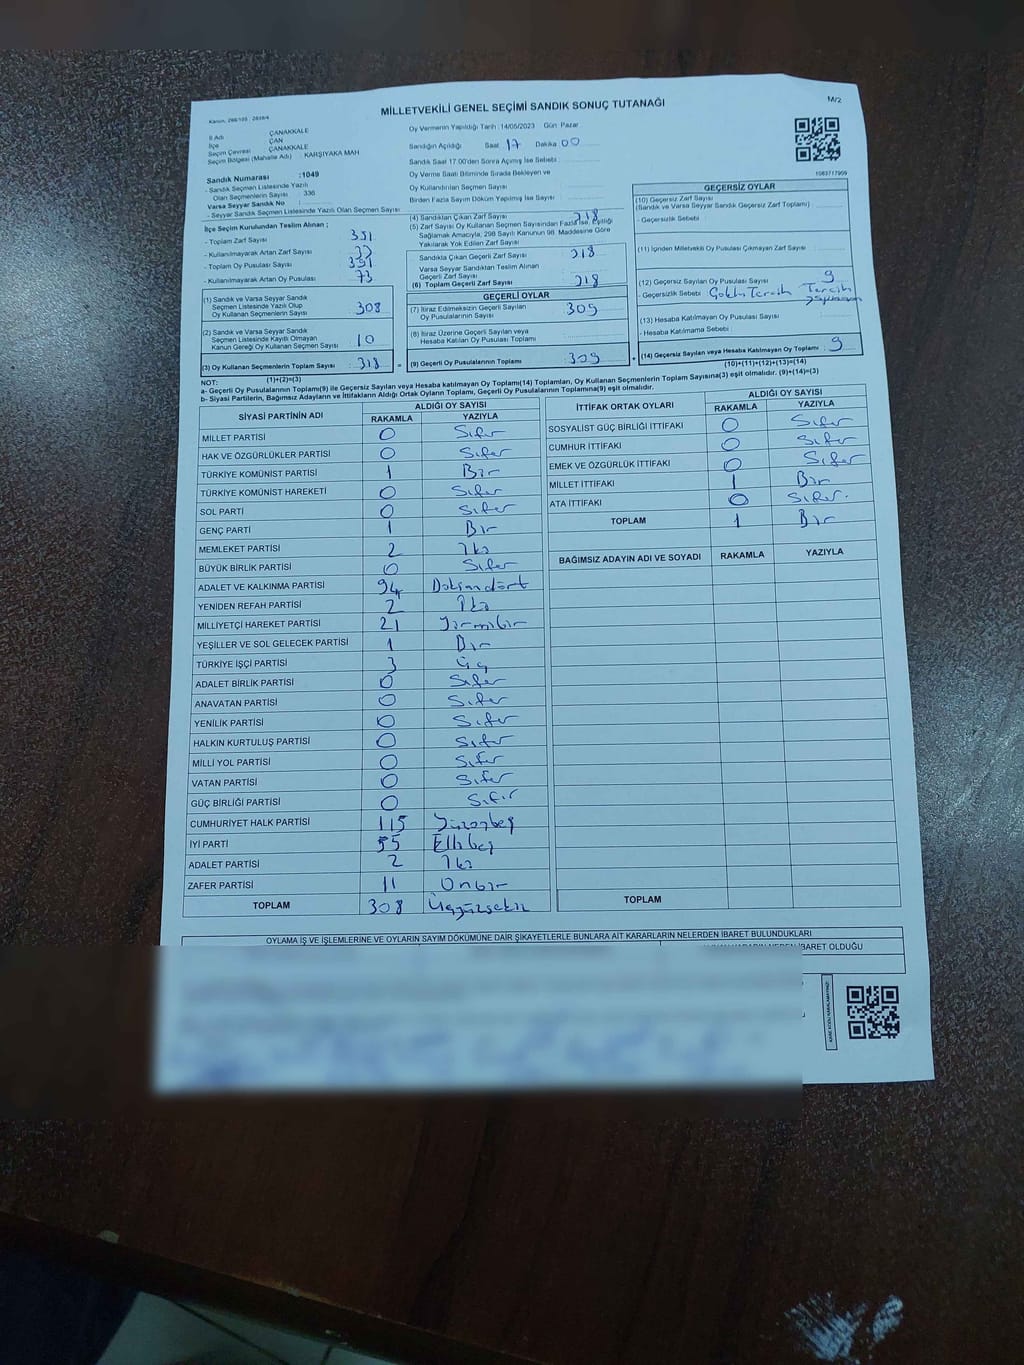 MİLLETVEKİLİ GENEL SEÇİMİ SANDIK SONUÇ TUTANAĞI
M/2
İl Adı : ÇANAKKALE
İlçe : ÇAN
Seçim Çevresi : ÇANAKKALE
Seçim Bölgesi (Mahalle Adı) : KARŞIYAKA MAH
Sandık Numarası :1049
- Sandık Seçmen Listesinde Yazılı
Olan Seçmenlerin Sayısı : 336
Varsa Seyyar Sandık No :
- Seyyar Sandık Seçmen Listesinde Yazılı Olan Seçmen Sayısı
Oy Vermenin Yapıldığı Tarih : 14/05/2023 Gün Pazar
Sandığın Açıldığı Saat 17 Dakika 00
Sandık Saat 17:00'den Sonra Açılmış İse Sebebi :
Oy Verme Saati Bitiminde Sırada Bekleyen ve
Oy Kullandırılan Seçmen Sayısı
Birden Fazla Sayım Döküm Yapılmış İse Sayısı
1083717909
İlçe Seçim Kurulundan Teslim Alınan ;
- Toplam Zarf Sayısı : 351
- Kullanılmayarak Artan Zarf Sayısı : 33
- Toplam Oy Pusulası Sayısı : 391
- Kullanılmayarak Artan Oy Pusulası : 73
(1) Sandık ve Varsa Seyyar Sandık
Seçmen Listesinde Yazılı Olup
Oy Kullanan Seçmenlerin Sayısı : 308
(2) Sandık ve Varsa Seyyar Sandık
Seçmen Listesinde Kayıtlı Olmayan
Kanun Gereği Oy Kullanan Seçmen Sayısı : 10
(3) Oy Kullanan Seçmenlerin Toplam Sayısı : 318
(1)+(2)=(3)
(4) Sandıktan Çıkan Zarf Sayısı 318
(5) Zarf Sayısı Oy Kullanan Seçmen Sayısından Fazla İse, Eşitliği
Sağlamak Amacıyla, 298 Sayılı Kanunun 98. Maddesine Göre
Yakılarak Yok Edilen Zarf Sayısı
Sandıkla Çıkan Geçerli Zarf Sayısı : 318
Varsa Seyyar Sandıktan Teslim Alınan
Geçerli Zarf Sayısı
(6) Toplam Geçerli Zarf Sayısı : 318
GEÇERLİ OYLAR
(7) İtiraz Edilmeksizin Geçerli Sayılan
Oy Pusulalarının Sayısı : 309
(8) İtiraz Üzerine Geçerli Sayılan veya
Hesaba Katılan Oy Pusulası Toplamı
(9) Geçerli Oy Pusulalarının Toplamı : 309
GEÇERSİZ OYLAR
(10) Geçersiz Zarf Sayısı
(Sandık ve Varsa Seyyar Sandık Geçersiz Zarf Toplamı) :
- Geçersizlik Sebebi :
(11) İçinden Milletvekili Oy Pusulası Çıkmayan Zarf Sayısı :
(12) Geçersiz Sayılan Oy Pusulası Sayısı : 9
- Geçersizlik Sebebi : Tercih
(13) Hesaba Katılmayan Oy Pusulası Sayısı :
- Hesaba Katılmama Sebebi :
(14) Geçersiz Sayılan veya Hesaba Katılmayan Oy Toplamı : 9
(10)+(11)+(12)+(13)=(14)
NOT:
a- Geçerli Oy Pusulalarının Toplamı(9) ile Geçersiz Sayılan veya Hesaba katılmayan Oy Toplamı(14) Toplamları, Oy Kullanan Seçmenlerin Toplam Sayısına(3) eşit olmalıdır. (9)+(14)=(3)
b- Siyasi Partilerin, Bağımsız Adayların ve İttifakların Aldığı Ortak Oyların Toplamı, Geçerli Oy Pusulalarının Toplamına(9) eşit olmalıdır.
SİYASİ PARTİNİN ADI ALDIĞI OY SAYISI
RAKAMLA YAZIYLA
MİLLET PARTİSİ 0 Sıfır
HAK VE ÖZGÜRLÜKLER PARTİSİ 0 Sıfır
TÜRKİYE KOMÜNİST PARTİSİ 1 Bir
TÜRKİYE KOMÜNİST HAREKETİ 0 Sıfır
SOL PARTİ 0 Sıfır
GENÇ PARTİ 1 Bir
MEMLEKET PARTİSİ 2 İki
BÜYÜK BİRLİK PARTİSİ 0 Sıfır
ADALET VE KALKINMA PARTİSİ 94 Doksandört
YENİDEN REFAH PARTİSİ 2 İki
MİLLİYETÇİ HAREKET PARTİSİ 21 Yirmibir
YEŞİLLER VE SOL GELECEK PARTİSİ 1 Bir
TÜRKİYE İŞÇİ PARTİSİ 3 Üç
ADALET BİRLİK PARTİSİ 0 Sıfır
ANAVATAN PARTİSİ 0 Sıfır
YENİLİK PARTİSİ 0 Sıfır
HALKIN KURTULUŞ PARTİSİ 0 Sıfır
MİLLİ YOL PARTİSİ 0 Sıfır
VATAN PARTİSİ 0 Sıfır
GÜÇ BİRLİĞİ PARTİSİ 0 Sıfır
CUMHURİYET HALK PARTİSİ 115 Yüzonbeş
İYİ PARTİ 55 Ellibeş
ADALET PARTİSİ 2 İki
ZAFER PARTİSİ 11 Onbir
TOPLAM 308 Üçyüzsekiz
İTTİFAK ORTAK OYLARI ALDIĞI OY SAYISI
RAKAMLA YAZIYLA
SOSYALİST GÜÇ BİRLİĞİ İTTİFAKI 0 Sıfır
CUMHUR İTTİFAKI 0 Sıfır
EMEK VE ÖZGÜRLÜK İTTİFAKI 0 Sıfır
MİLLET İTTİFAKI 1 Bir
ATA İTTİFAKI 0 Sıfır.
TOPLAM 1 Bir
BAĞIMSIZ ADAYIN ADI VE SOYADI RAKAMLA YAZIYLA
TOPLAM
OYLAMA İŞ VE İŞLEMLERİNE VE OYLARIN SAYIM DÖKÜMÜNE DAİR ŞİKAYETLERLE BUNLARA AİT KARARLARIN NELERDEN İBARET BULUNDUKLARI
İBARET OLDUĞU